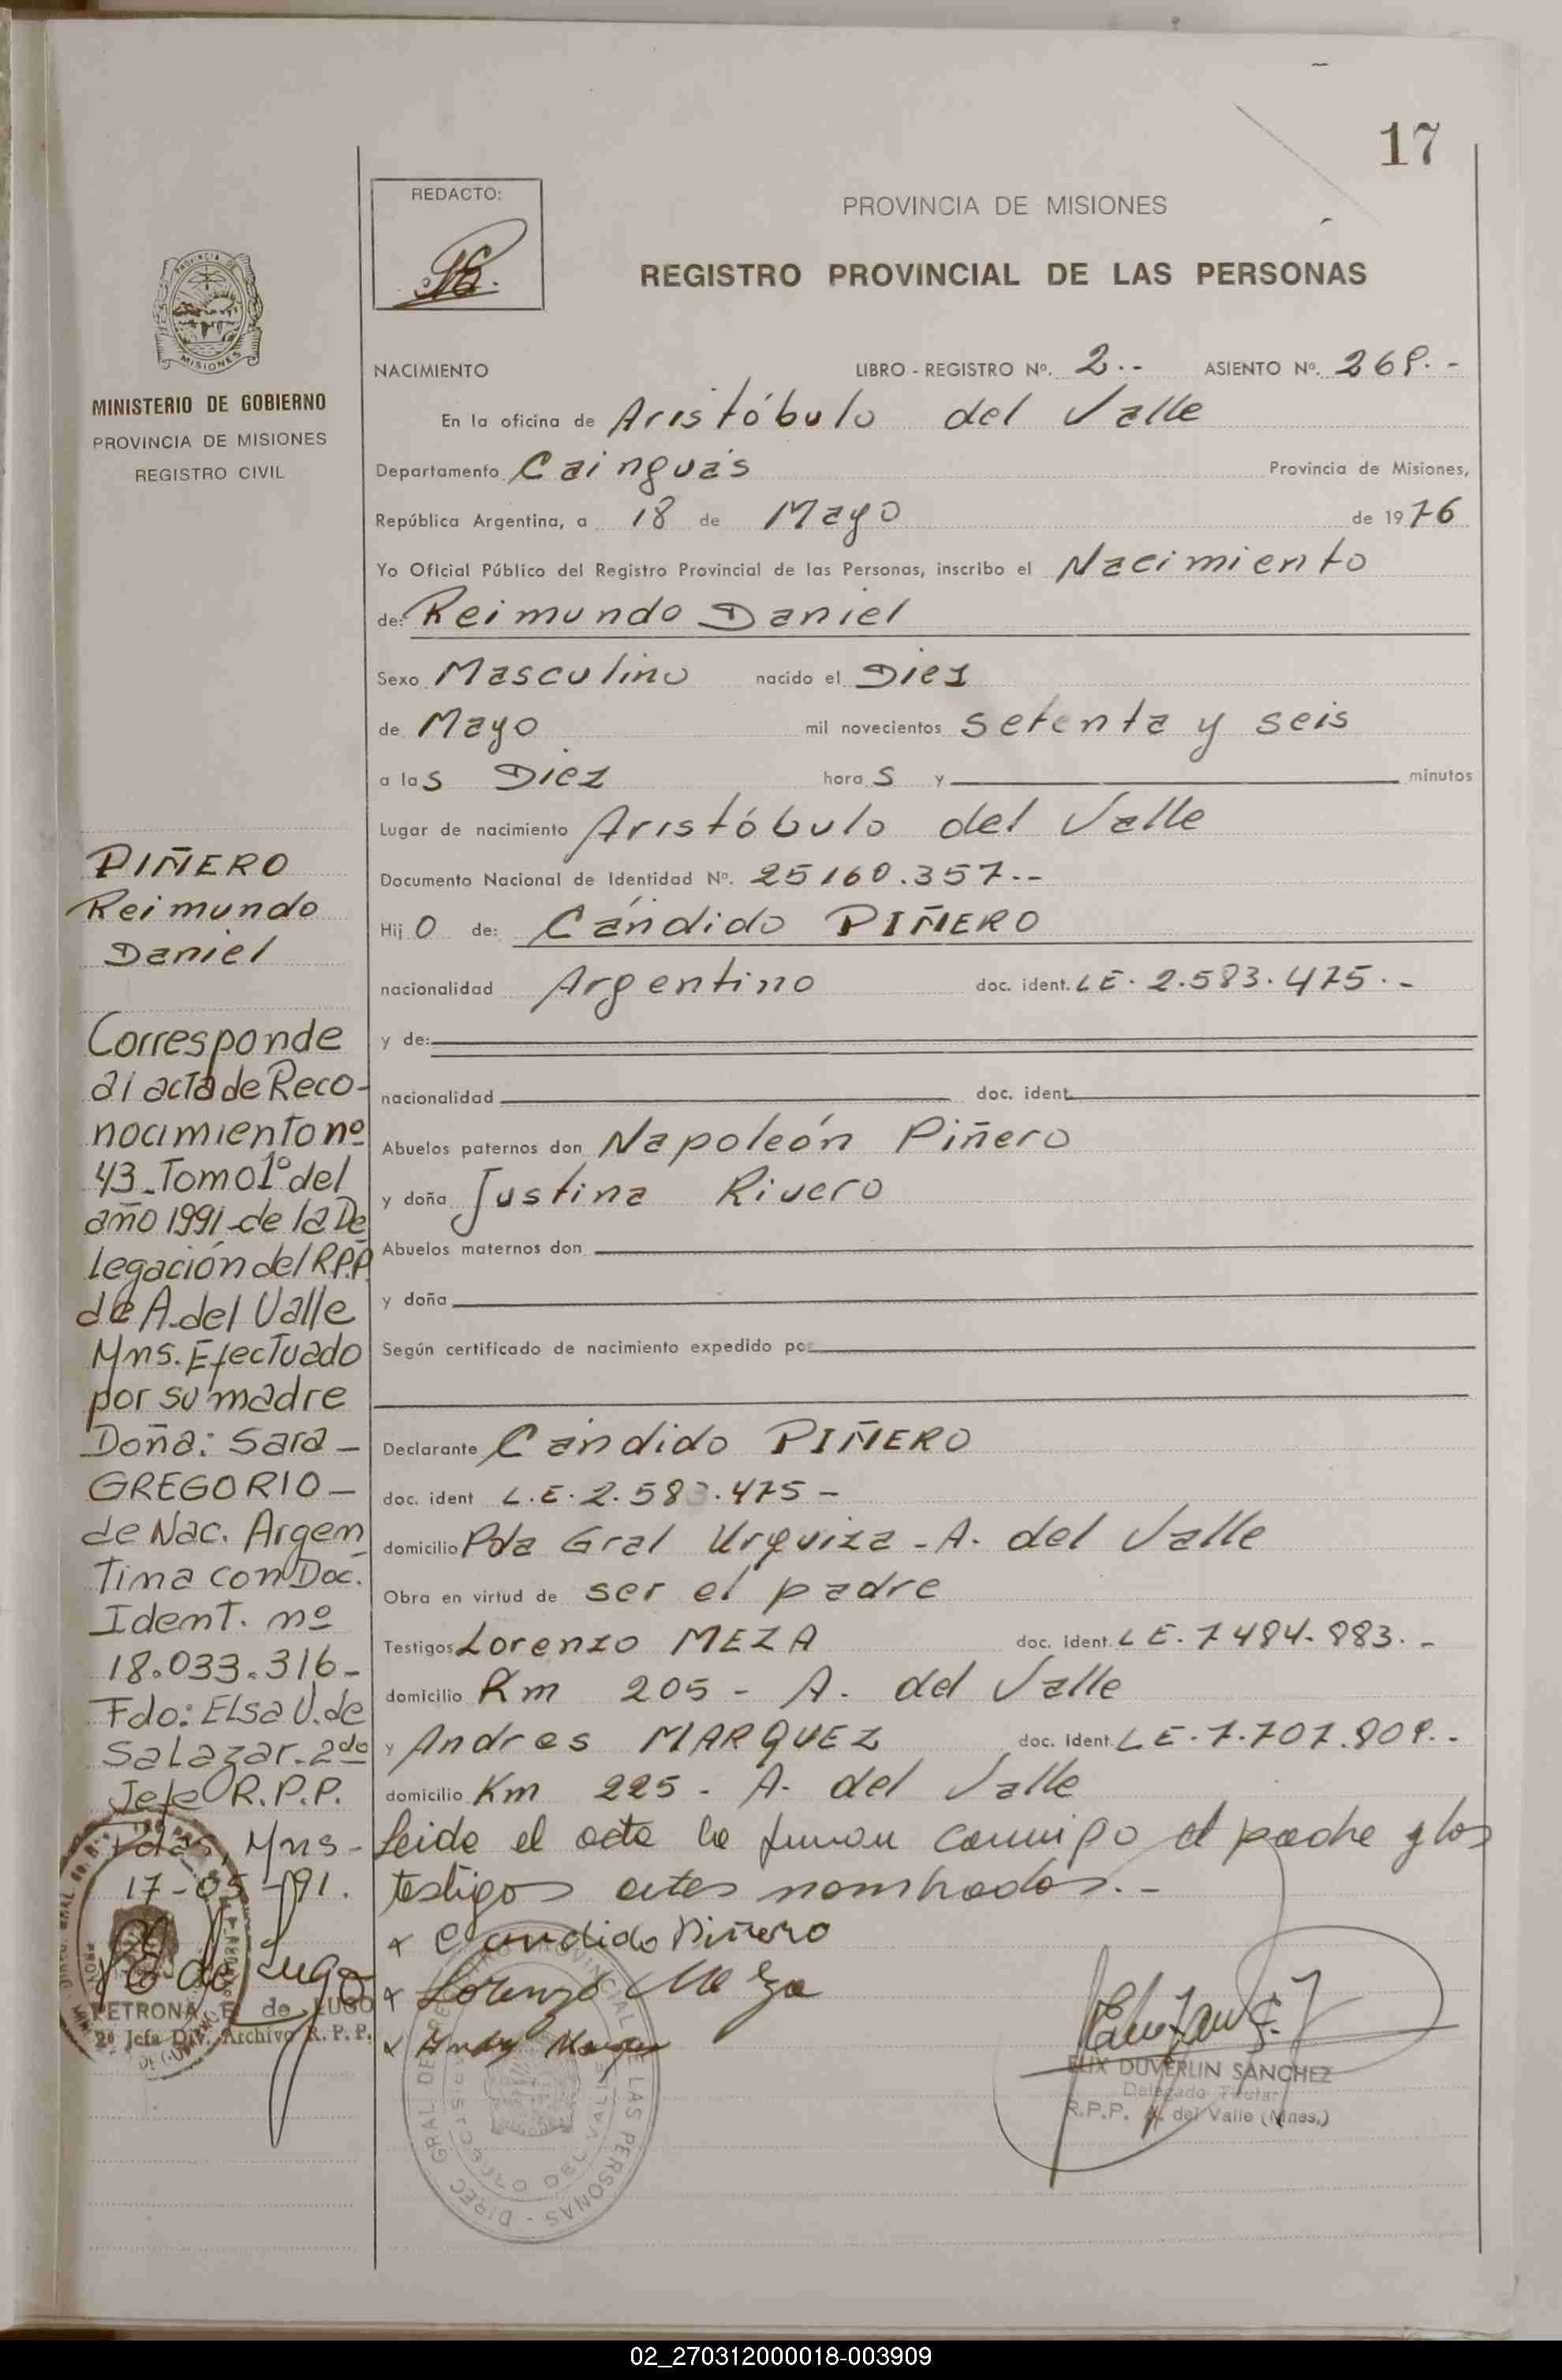 17
REDACTO:
PROVINCIA DE MISIONES
REGISTRO PROVINCIAL DE LAS PERSONAS
PROVINCIA DE
MISIONES
MINISTERIO DE GOBIERNO
PROVINCIA DE MISIONES
REGISTRO CIVIL
PIÑERO
Reimundo
Daniel
Corresponde
al acta de Reco-
nocimiento nº
43-Tomo 1º del
año 1991-de la De
legación del R.P.P.
de A. del Valle
Mns. Efectuado
por su madre
Doña: Sara -
GREGORIO -
de Nac. Argen
tina con Doc.
Ident. nº
18.033.316-
Fdo: Elsa U. de
Salazar-2do
Jefe R.P.P.
Pdas, Mns-
17-05-91.
PETRONA E. de LUGO
2º Jefa Div. Archivo R. P. P.
NACIMIENTO LIBRO - REGISTRO Nº. 2.- ASIENTO Nº. 269.-
En la oficina de Aristóbulo del Valle
Departamento Cainguás Provincia de Misiones,
República Argentina, a 18 de Mayo de 1976
Yo Oficial Público del Registro Provincial de las Personas, inscribo el Nacimiento
de: Reimundo Daniel
Sexo Masculino nacido el Diez
de Mayo mil novecientos setenta y seis
a las Diez horas y minutos
Lugar de nacimiento Aristóbulo del Valle
Documento Nacional de Identidad Nº. 25160.357.--
Hijo de: Cándido PIÑERO
nacionalidad Argentino doc. ident. LE. 2.583.475.-
y de:
nacionalidad doc. ident.
Abuelos paternos don Napoleón Piñero
y doña Justina Rivero
Abuelos maternos don
y doña
Según certificado de nacimiento expedido por
Declarante Cándido PIÑERO
doc. ident L.E. 2.583.475-
domicilio Pda Gral Urquiza - A. del Valle
Obra en virtud de ser el padre
Testigos Lorenzo MEZA doc. ident. LE. 7484.983.-
domicilio Km 205 - A. del Valle
y Andres MARQUEZ doc. ident. LE. 7.707.909.-
domicilio Km 225 - A. del Valle
Leida el acta la firman conmigo el padre y los
testigos antes nombrados.-
x Candido Piñero
x Lorenzo Meza
x Andres Marquez
DUVERLIN SANCHEZ
Delegado Titular
R.P.P. A. del Valle (Mnes.)
02_270312000018-003909